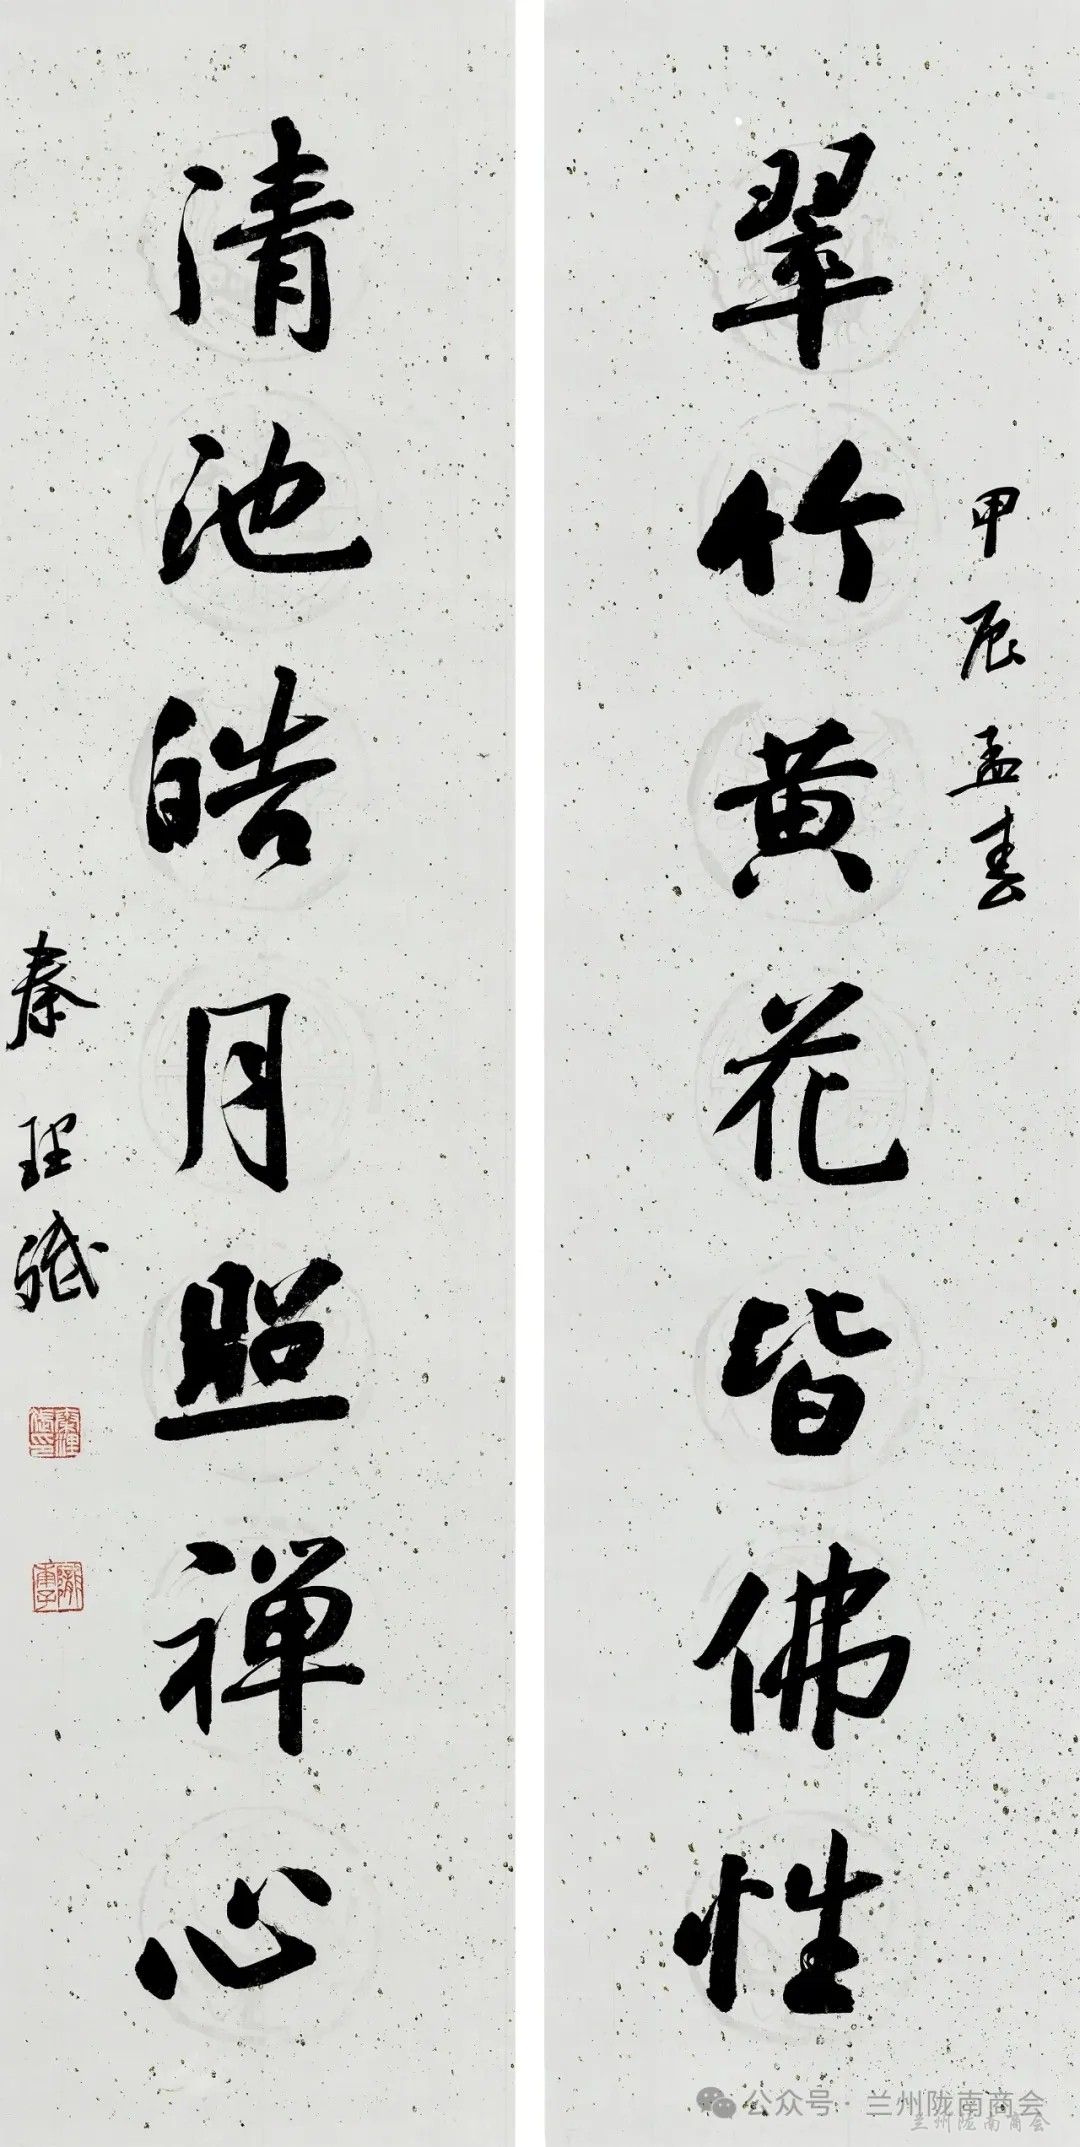 甲辰孟春
翠竹黄花皆佛性
清池皓月照禅心
秦理斌
公众号·兰州陇南商会
兰州陇南商会